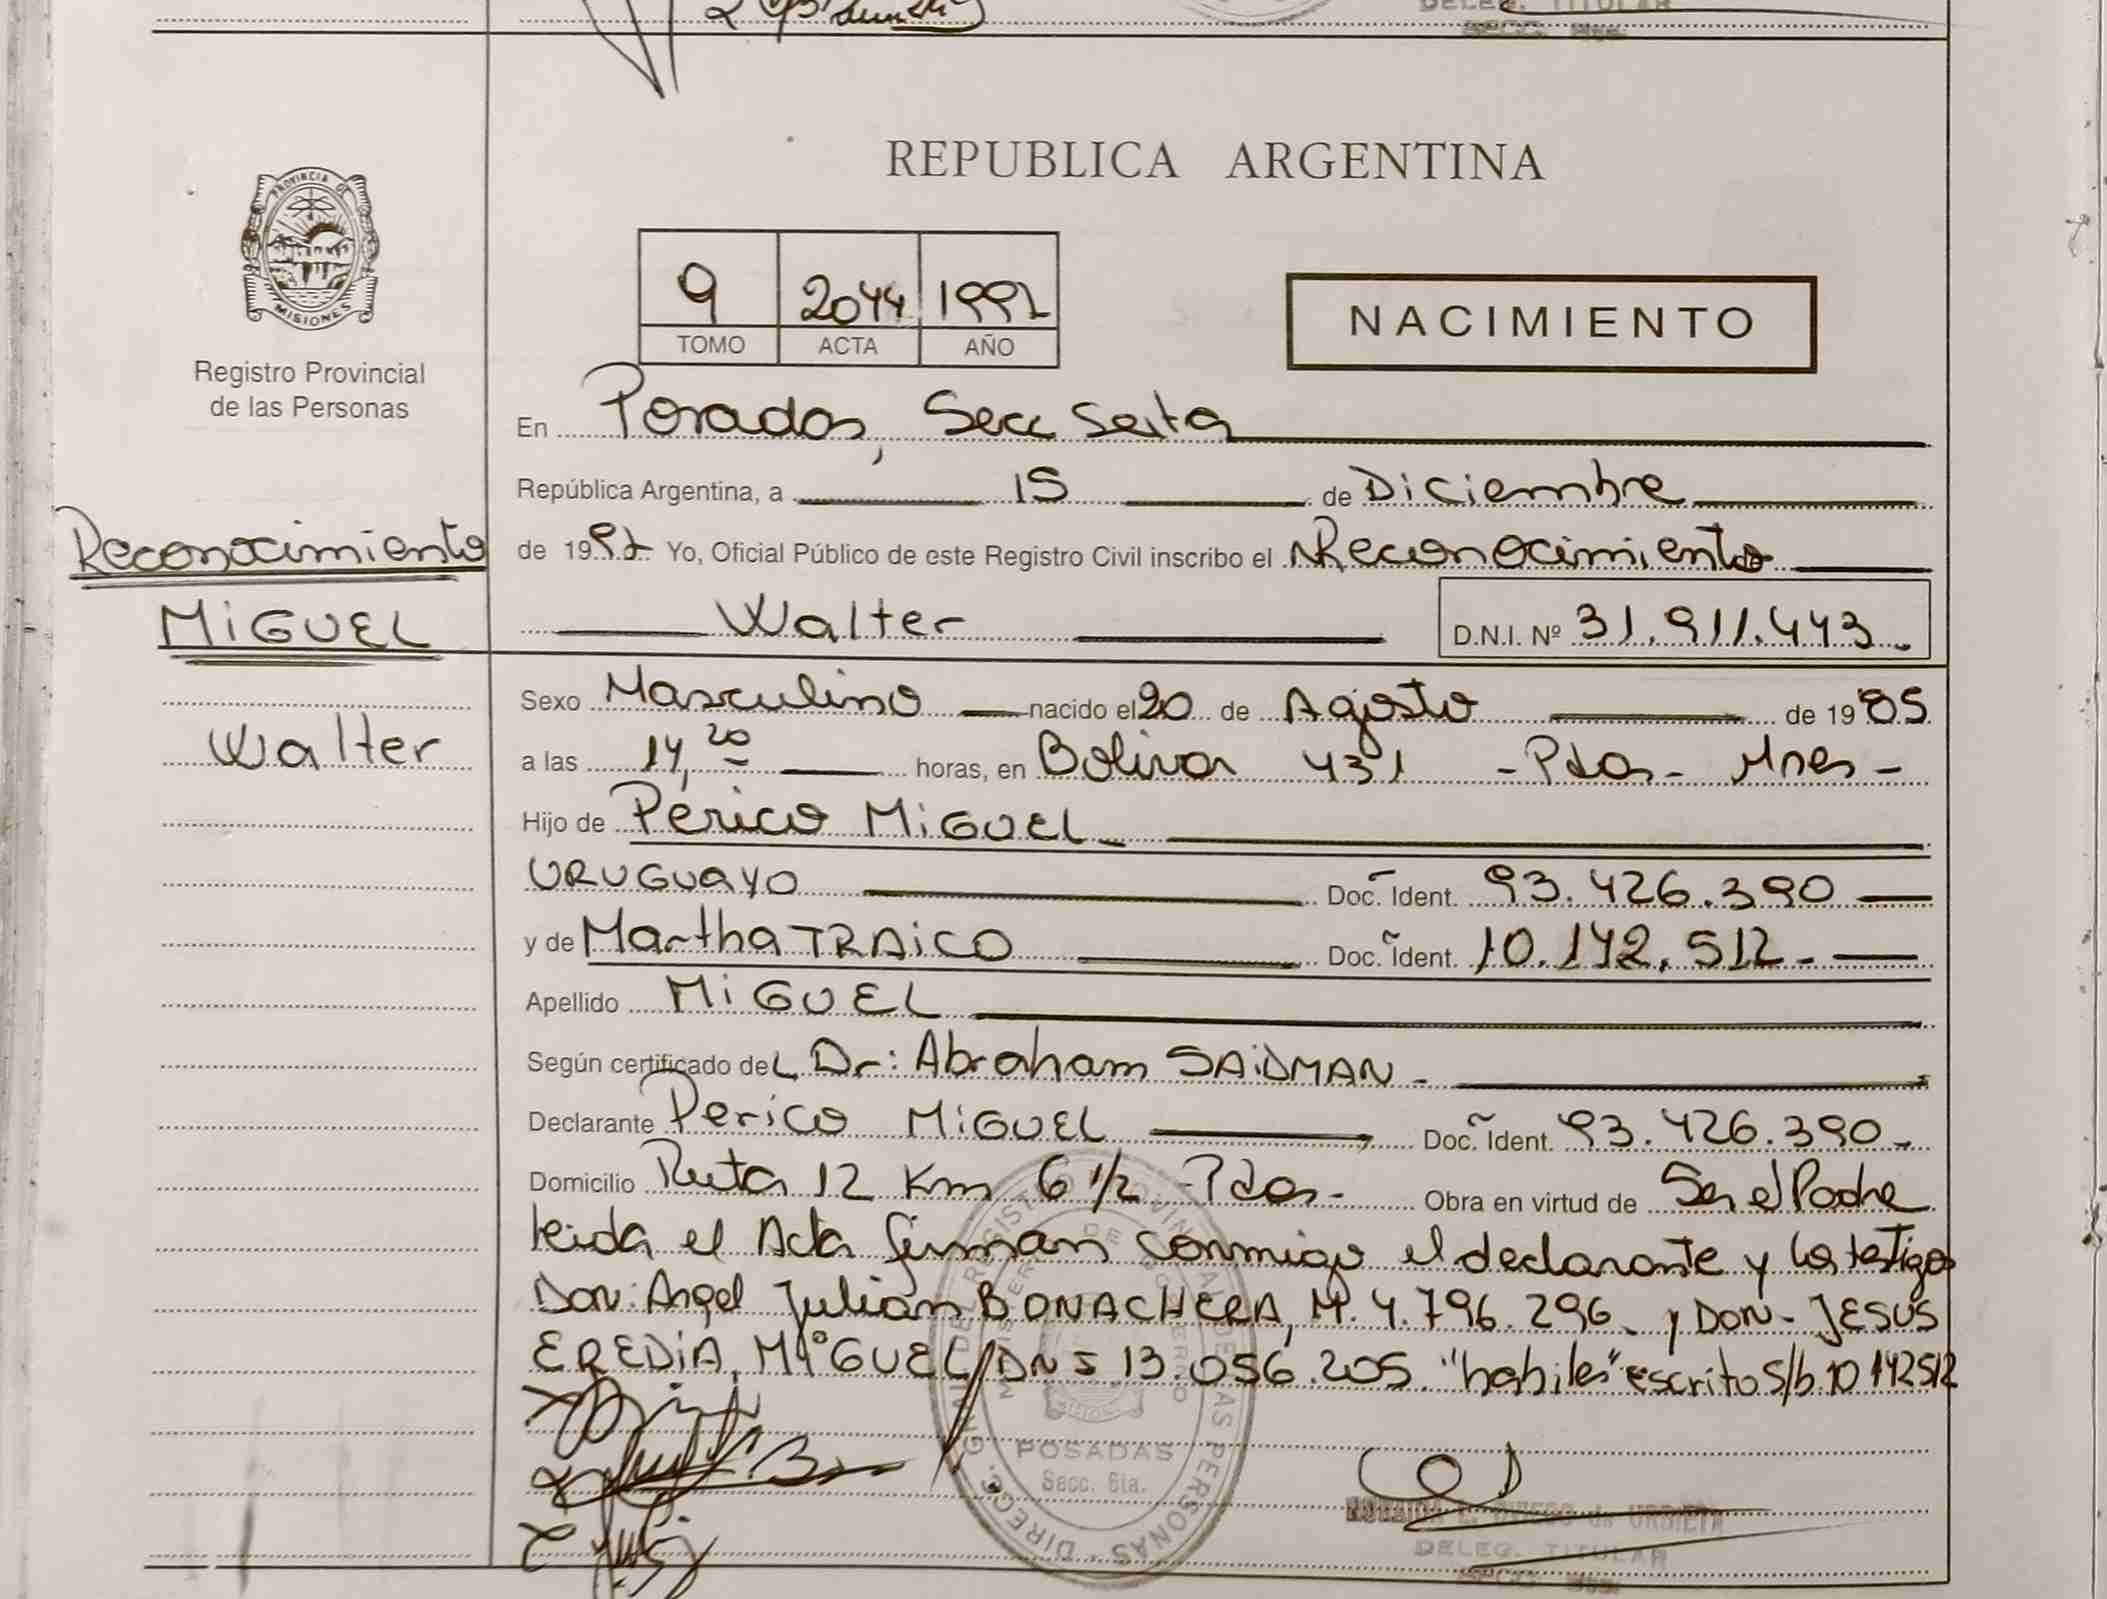 PROVINCIA DE
MISIONES
Registro Provincial
de las Personas
Reconocimiento
MIGUEL
Walter
DELEG. TITULAR
REPUBLICA ARGENTINA
9 2044 1992
TOMO ACTA AÑO
NACIMIENTO
En Posadas, Secc Sexta
República Argentina, a 15 de Diciembre
de 1992 Yo, Oficial Público de este Registro Civil inscribo el Reconocimiento
Walter D.N.I. Nº 31.911.443
Sexo Masculino nacido el 20 de Agosto de 1985
a las 14,20 horas, en Bolivar 431 - Pdas - Mnes -
Hijo de Perico MIGUEL
URUGUAYO Doc. Ident. 93.426.390
y de Martha TRAICO Doc. Ident. 10.142.512 -
Apellido MIGUEL
Según certificado del Dr: Abraham SAIDMAN -
Declarante Perico MIGUEL Doc. Ident. 93.426.390 -
Domicilio Ruta 12 Km 6 1/2 - Pdas - Obra en virtud de Ser el Padre
leida el Acta firman conmigo el declarante y los testigos
Don: Angel Julián BONACHERA, M. 4.796.296. y DON - JESUS
EREDIA, MIGUEL DNI 13.056.205. "habiles" escrito s/b 10142512
POSADAS
Secc. 6ta.
URBIETA
DELEG. TITULAR